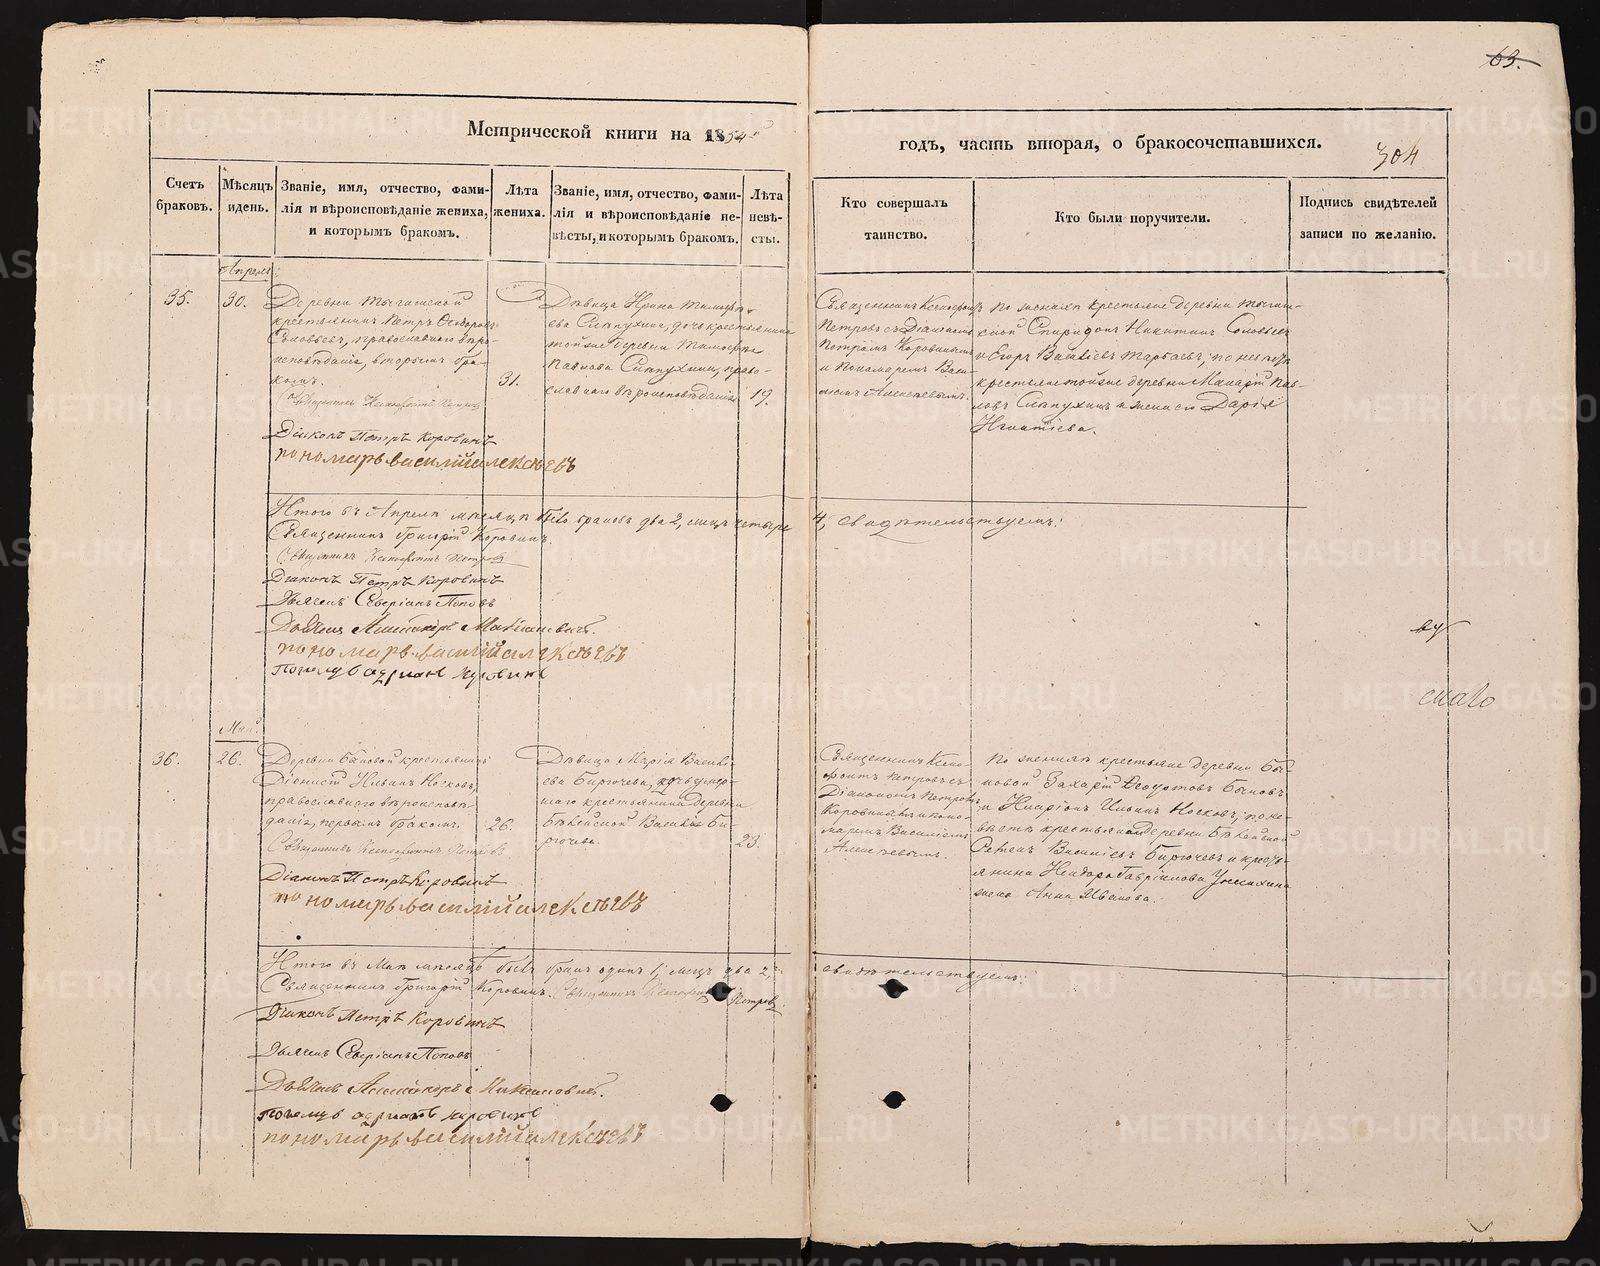 63.
304
Метрической книги на 1854
годъ, часть вторая, о бракосочетавшихся.
Счетъ браковъ.
Мѣсяцъ и день.
Званіе, имя, отчество, фами-
лія и вѣроисповѣданіе жениха,
и которымъ бракомъ.
Лѣта жениха.
Званіе, имя, отчество, фами-
лія и вѣроисповѣданіе не-
вѣсты, и которымъ бракомъ.
Лѣта невѣ-
сты.
Кто совершалъ
таинство.
Кто были поручители.
Подпись свидѣтелей
записи по желанію.
Апрель
35.
30.
Деревни
крестьянинъ Петръ Ѳеодоровъ
Соловьевъ, православнаго вѣро-
исповѣданія, вторымъ бра-
комъ.
Священникъ Ксенофонтъ Петровъ
Діаконъ Петръ Коровинъ
пономарь василій алексѣевъ
31.
Дѣвица Ирина Тимоѳе-
ева Слипухина, дочь крестьянина
той же деревни Тимоѳея
Павлова Слипухина, право-
славнаго вѣроисповѣданія
19.
Священникъ Ксенофонтъ
Петровъ съ Діакономъ
Петромъ Коровинымъ
и пономаремъ Васи-
ліемъ Алексеевымъ.
По женихѣ крестьяне деревни
Спиридонъ Никитинъ Соловьевъ
и Егоръ Васильевъ по невѣстѣ
крестьяне той же деревни Макаръ Пав-
ловъ Слипухинъ и жена его Дарія
Игнатіева.
Итого въ Апрелѣ месяцѣ было браковъ два 2, лицъ четыре
4, свидѣтельствуемъ:
Священникъ Григорій Коровинъ
Священникъ Ксенофонтъ Петровъ
Діаконъ Петръ Коровинъ
Дьячекъ Северіанъ Поповъ
Дьячекъ
пономарь василій алексѣевъ
Май
36.
26.
Деревни Быковой крестьянинъ
Діонисій Ильинъ Носковъ,
православнаго вѣроисповѣ-
данія, первымъ бракомъ.
Священникъ Ксенофонтъ Петровъ
Діаконъ Петръ Коровинъ
пономарь василій алексѣевъ
26.
Дѣвица Марія Василь-
ева Бирючева, дочь умер-
шаго крестьянина деревни
Василія Би-
рючева.
23.
Священникъ Ксено-
фонтъ Петровъ съ
Діакономъ Петромъ
Коровинымъ и поно-
маремъ Василіемъ
Алексѣевымъ.
По женихѣ крестьяне деревни Бы-
ковой Захаръ Ѳедотовъ Быковъ
и Иларіонъ Ильинъ Носковъ; по не-
вѣстѣ крестьянинъ деревни
Василіевъ Бирючевъ и кресть-
янина Гавріилова
жена Анна Иванова.
Итого въ Маѣ месяцѣ былъ бракъ одинъ 1, лицъ два 2,
свидѣтельствуемъ:
Священникъ Григорій Коровинъ. Священникъ Ксенофонтъ Петровъ
Діаконъ Петръ Коровинъ
Дьячекъ Северіанъ Поповъ
Дьячекъ
пономарь василій алексѣевъ
METRIKI.GASO-URAL.RU